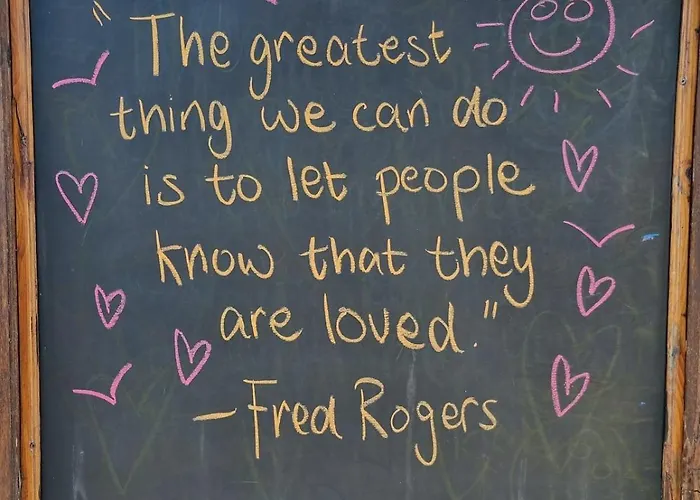 "The greatest
thing we can do
is to let people
know that they
are loved."
- Fred Rogers